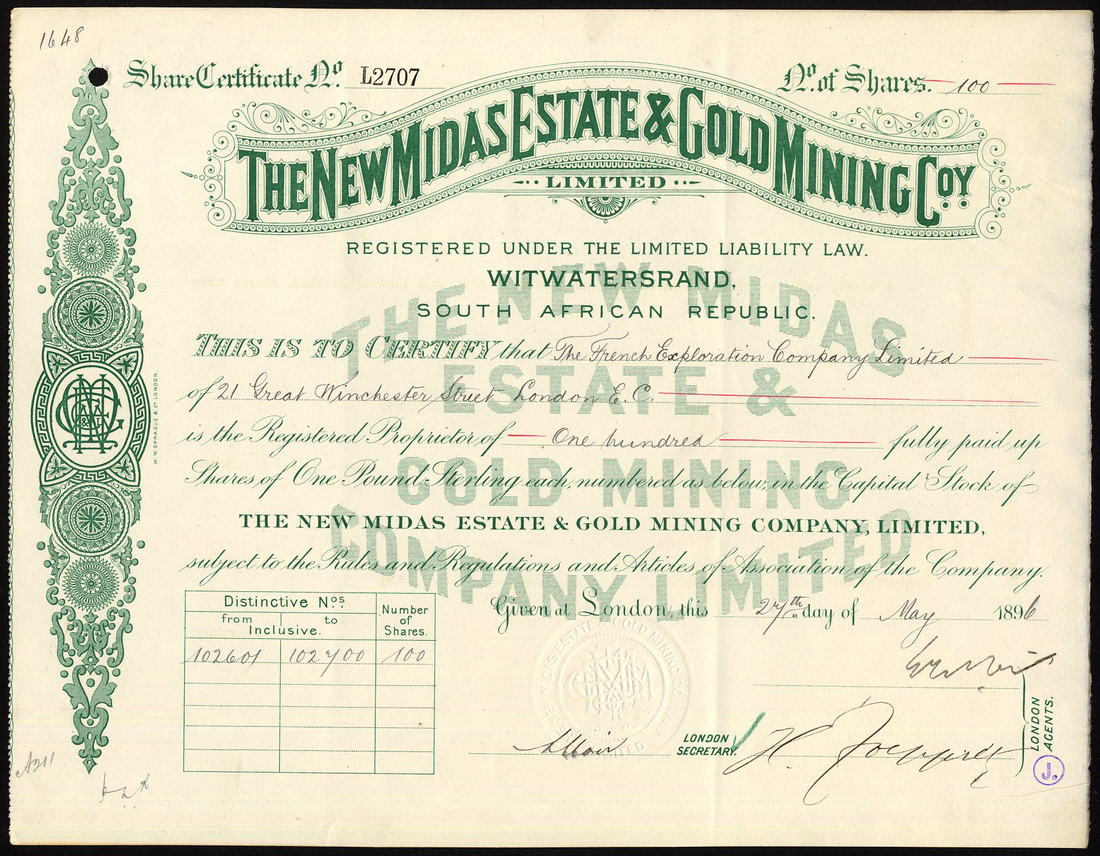 1648
Share Certificate No. L2707
No. of Shares. 100
THE NEW MIDAS ESTATE & GOLD MINING COY
LIMITED
REGISTERED UNDER THE LIMITED LIABILITY LAW.
WITWATERSRAND,
SOUTH AFRICAN REPUBLIC.
THIS IS TO CERTIFY that The French Exploration Company Limited
of 21 Great Winchester Street London E.C.
is the Registered Proprietor of One hundred fully paid up
Shares of One Pound Sterling each, numbered as below, in the Capital Stock of
THE NEW MIDAS ESTATE & GOLD MINING COMPANY, LIMITED,
subject to the Rules and Regulations and Articles of Association of the Company.
THE NEW MIDAS
ESTATE &
GOLD MINING
COMPANY LIMITED
Given at London, this 27th day of May 1896
Distinctive Nos. Number of Shares.
from to
Inclusive.
102601 102700 100
LONDON SECRETARY.
LONDON AGENTS.
J.
W.W. SPRAGUE & Co. LONDON.